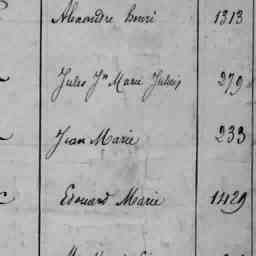 Alexandre henri 1313
Jules Jn Marie Jules 279
Jean Marie 233
Edouard Marie 1429